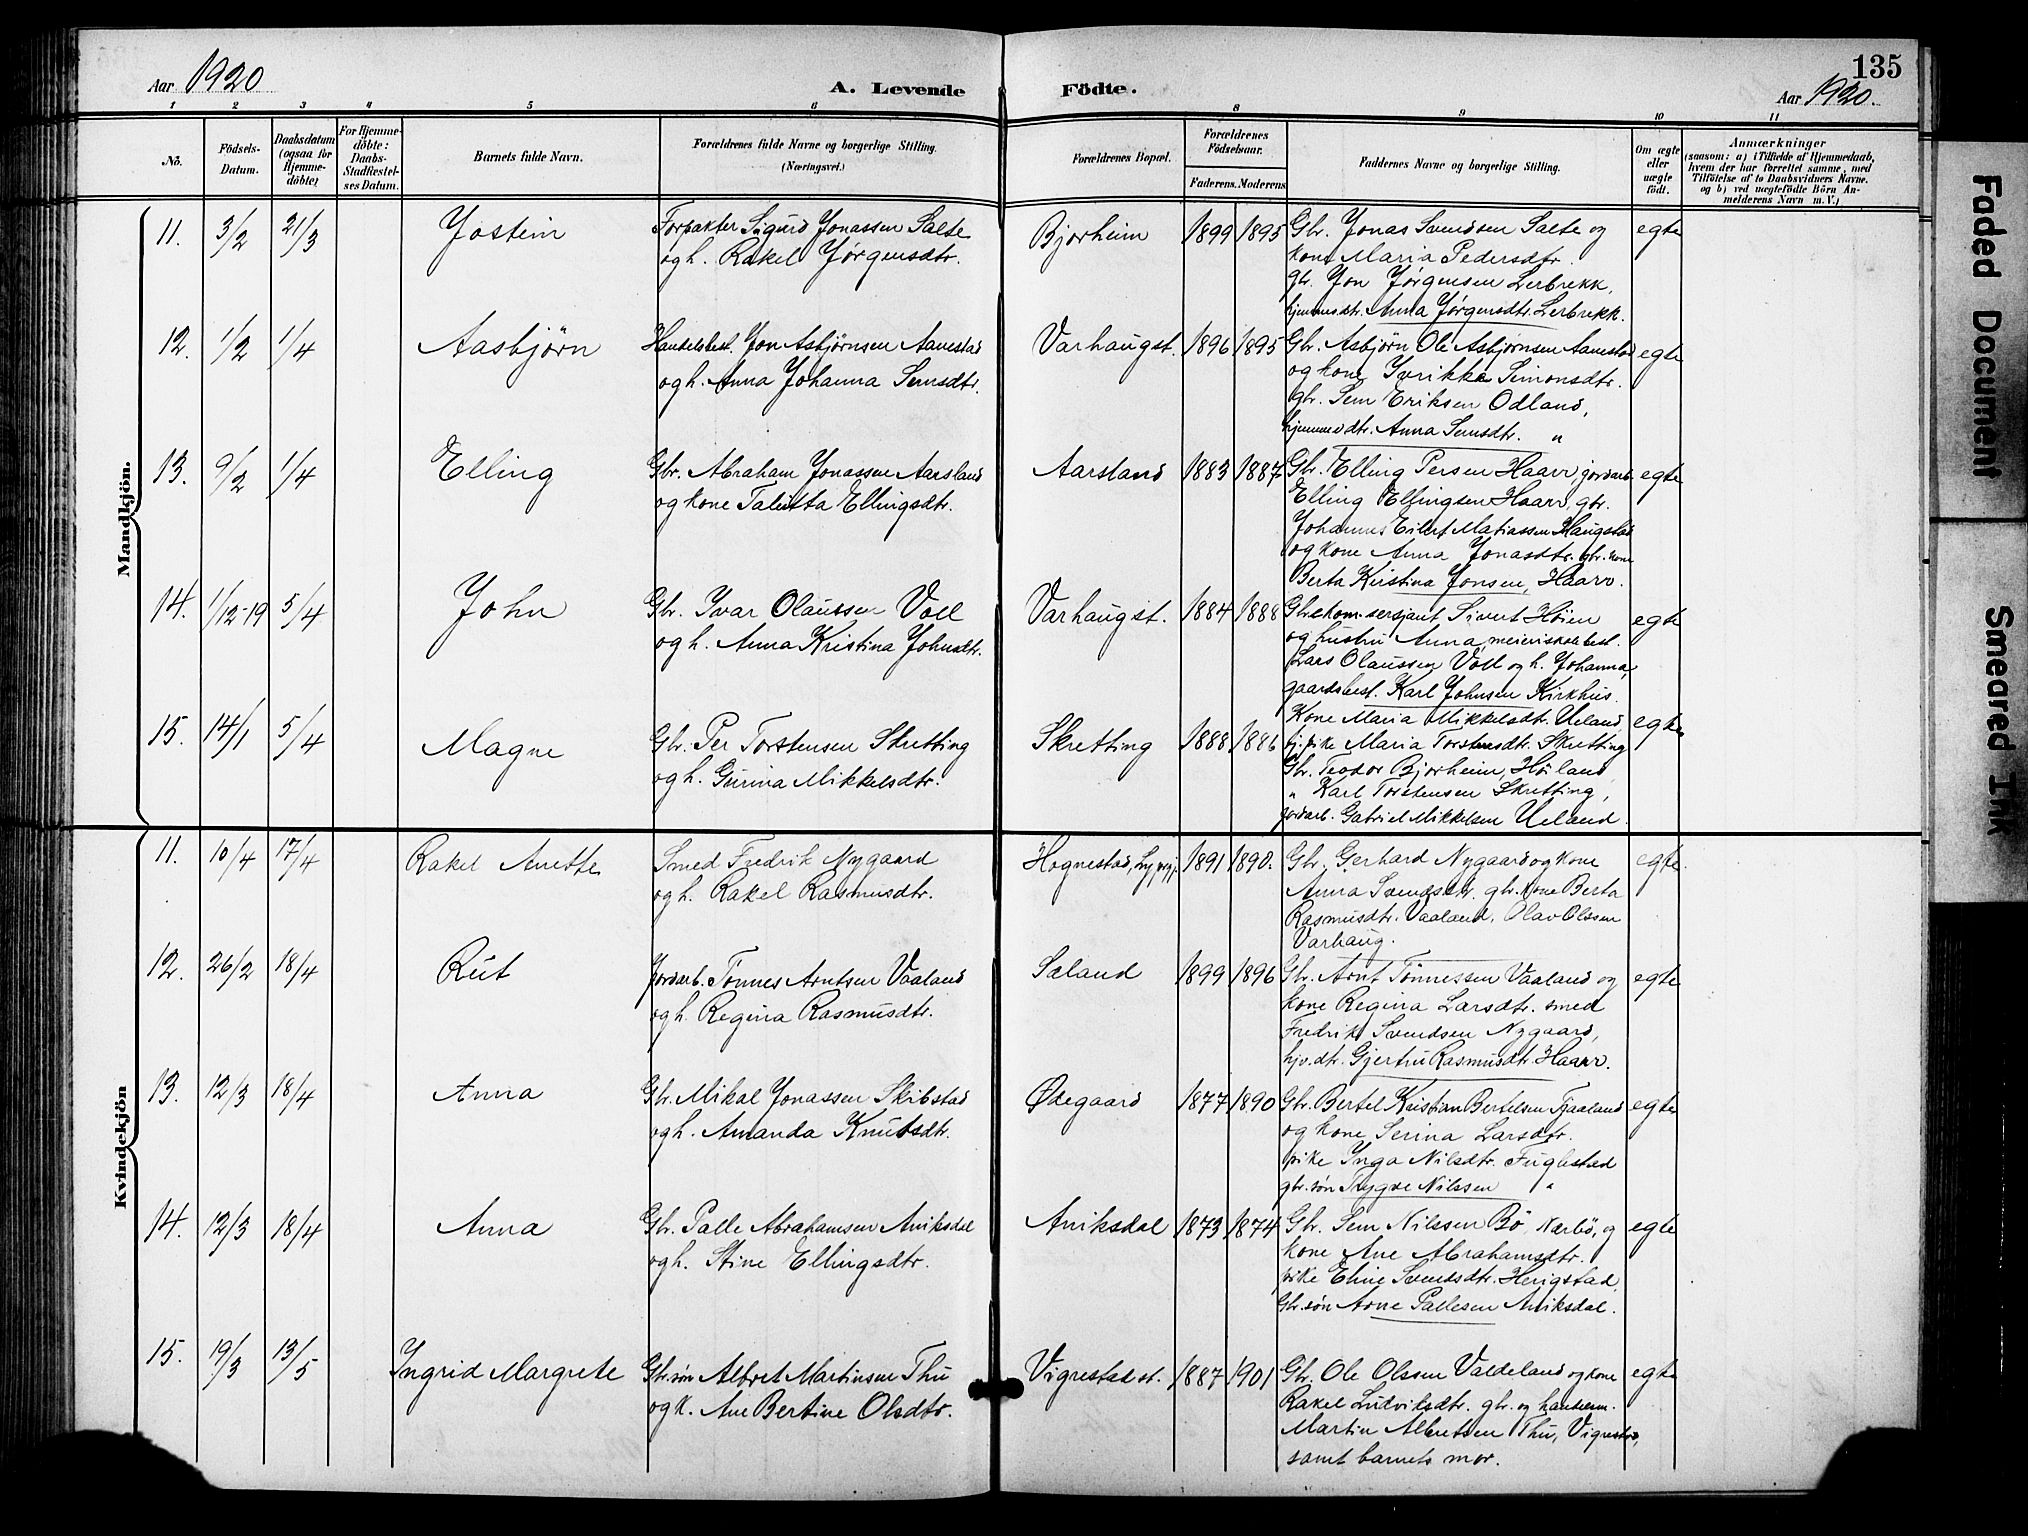 135
Aar 1920
A. Levende Födte.
Aar 1920.
1 2 3 4 5 6 8 9 10 11
No.
Födsels-
Datum.
Daabsdatum
(ogsaa for
Hjemme-
döbte)
For Hjemme-
döbte:
Daabs-
Stadfæstel-
ses Datum.
Barnets fulde Navn.
Forældrenes fulde Navne og borgerlige Stilling.
(Næringsvei.)
Forældrenes Bopæl.
Forældrenes
Födselsaar.
Faderens. Moderens
Faddernes Navne og borgerlige Stilling.
Om ægte
eller
uægte
födt.
Anmærkninger
(saasom: a) i Tilfælde af Hjemmedaab,
hvem der har forrettet samme, med
Tilföielse af to Daabsvidners Navne.
og b) ved uægtefödte Börn An-
melderens Navn m. V.)
Mandkjön.
11. 3/2 21/3 Jostein
Forpakter Sigurd Jonassen Salte
og h. Rakel Jørgensdtr.
Bjorheim 1899 1895
Gbr. Jonas Svendsen Salte og
kone Maria Pedersdtr.
gbr. Jon Jørgensen Lerbrekk,
hjemmedtr. Anna Jørgensdtr. Lerbrekk.
egte
12. 1/2 1/4 Aasbjörn
Handelsbest. Jon Asbjørnsen Aanestad
og h. Anna Johanna Semsdtr.
Varhaugst. 1896 1895
Gbr. Asbjörn Ole Asbjørnsen Aanestad
og kone Yvrikke Simonsdtr.
gbr. Sem Eriksen Odland,
hjemmedtr. Anna Semsdtr. "
egte
13. 9/2 1/4 Elling
Gbr. Abraham Jonassen Aarsland
og kone Talitta Ellingsdtr.
Aarsland 1883 1887
Gbr. Elling Persen Haarr, jordarb.
Elling Ellingsen Haarr, gbr.
Johannes Eilert Matiassen Haugstad
og kone Anna Jonasdtr. gbr. kone
Berta Kirstina Jonsen, Haarr.
egte
14. 1/12-19 5/4 John
Gbr. Ivar Olaussen Voll
og h. Anna Kristina Johnsdtr.
Varhaugst. 1884 1888
Gbr. kom. sersjant Sivert Höien
og hustru Anna, meieriskolebest.
Lars Olaussen Voll og h. Johanna,
gaardsbest. Karl Johnsen Kirkhus.
egte
15. 14/1 5/4 Magne
Gbr. Per Torstensen Skretting
og h. Gurina Mikkelsdtr.
Skretting 1888 1886
Kone Maria Mikkelsdtr. Ueland
tj. pike Maria Torstensdtr. Skretting
Gbr. Teodor Bjorheim, Höiland,
" Karl Torstensen Skretting,
jordarb. Gabriel Mikkelsen Ueland.
egte
Kvindekjön
11. 10/4 17/4 Rakel Anette
Smed Fredrik Nygaard
og h. Rakel Rasmusdtr.
Hognestad, 1891 1890.
Gbr. Gerhard Nygaard og kone
Anna Svendsdtr. gbr. kone Berta
Rasmusdtr. Vaaland. Olav Olssen
Varhaug.
egte
12. 26/2 18/4 Rut
Jordarb. Tönnes Arntsen Vaaland
og h. Regina Rasmusdtr.
Sæland 1899 1896
Gbr. Arnt Tönnessen Vaaland og
kone Regina Larsdtr. smed
Fredrik Svendsen Nygaard,
hjv. dtr. Gjertru Rasmusdtr. Haarr.
egte
13. 12/3 18/4 Anna
Gbr. Mikal Jonassen Skibstad
og h. Amanda Knutsdtr.
Ødegaard 1877 1890
Gbr. Bertel Kristian Bertelsen Tjaaland
og kone Serina Larsdtr.
pike Inga Nilsdtr. Fuglestad
gbr. søn Trygve Nilssen "
egte
14. 12/3 18/4 Anna
Gbr. Palle Abrahamsen Aniksdal
og h. Stine Ellingsdtr.
Aniksdal 1873 1874
Gbr. Sem Nilssen Bö, Nærbö, og
kone Ane Abrahamsdtr.
pike Eline Svendsdtr. Herigstad
Gbr. søn Arne Pallesen Aniksdal.
egte
15. 19/3 13/5 Ingrid Margrete
Gbr. søn Albret Martinsen Thu
og k. Ane Bertine Olsdtr.
Vigrestad st. 1887 1901
Gbr. Ole Olssen Valdeland og kone
Rakel Ludviksdtr. gbr. og handelsm.
Martin Albretsen Thu, Vigrestad,
samt barnets mor.
egte
Faded Document
Smeared Ink